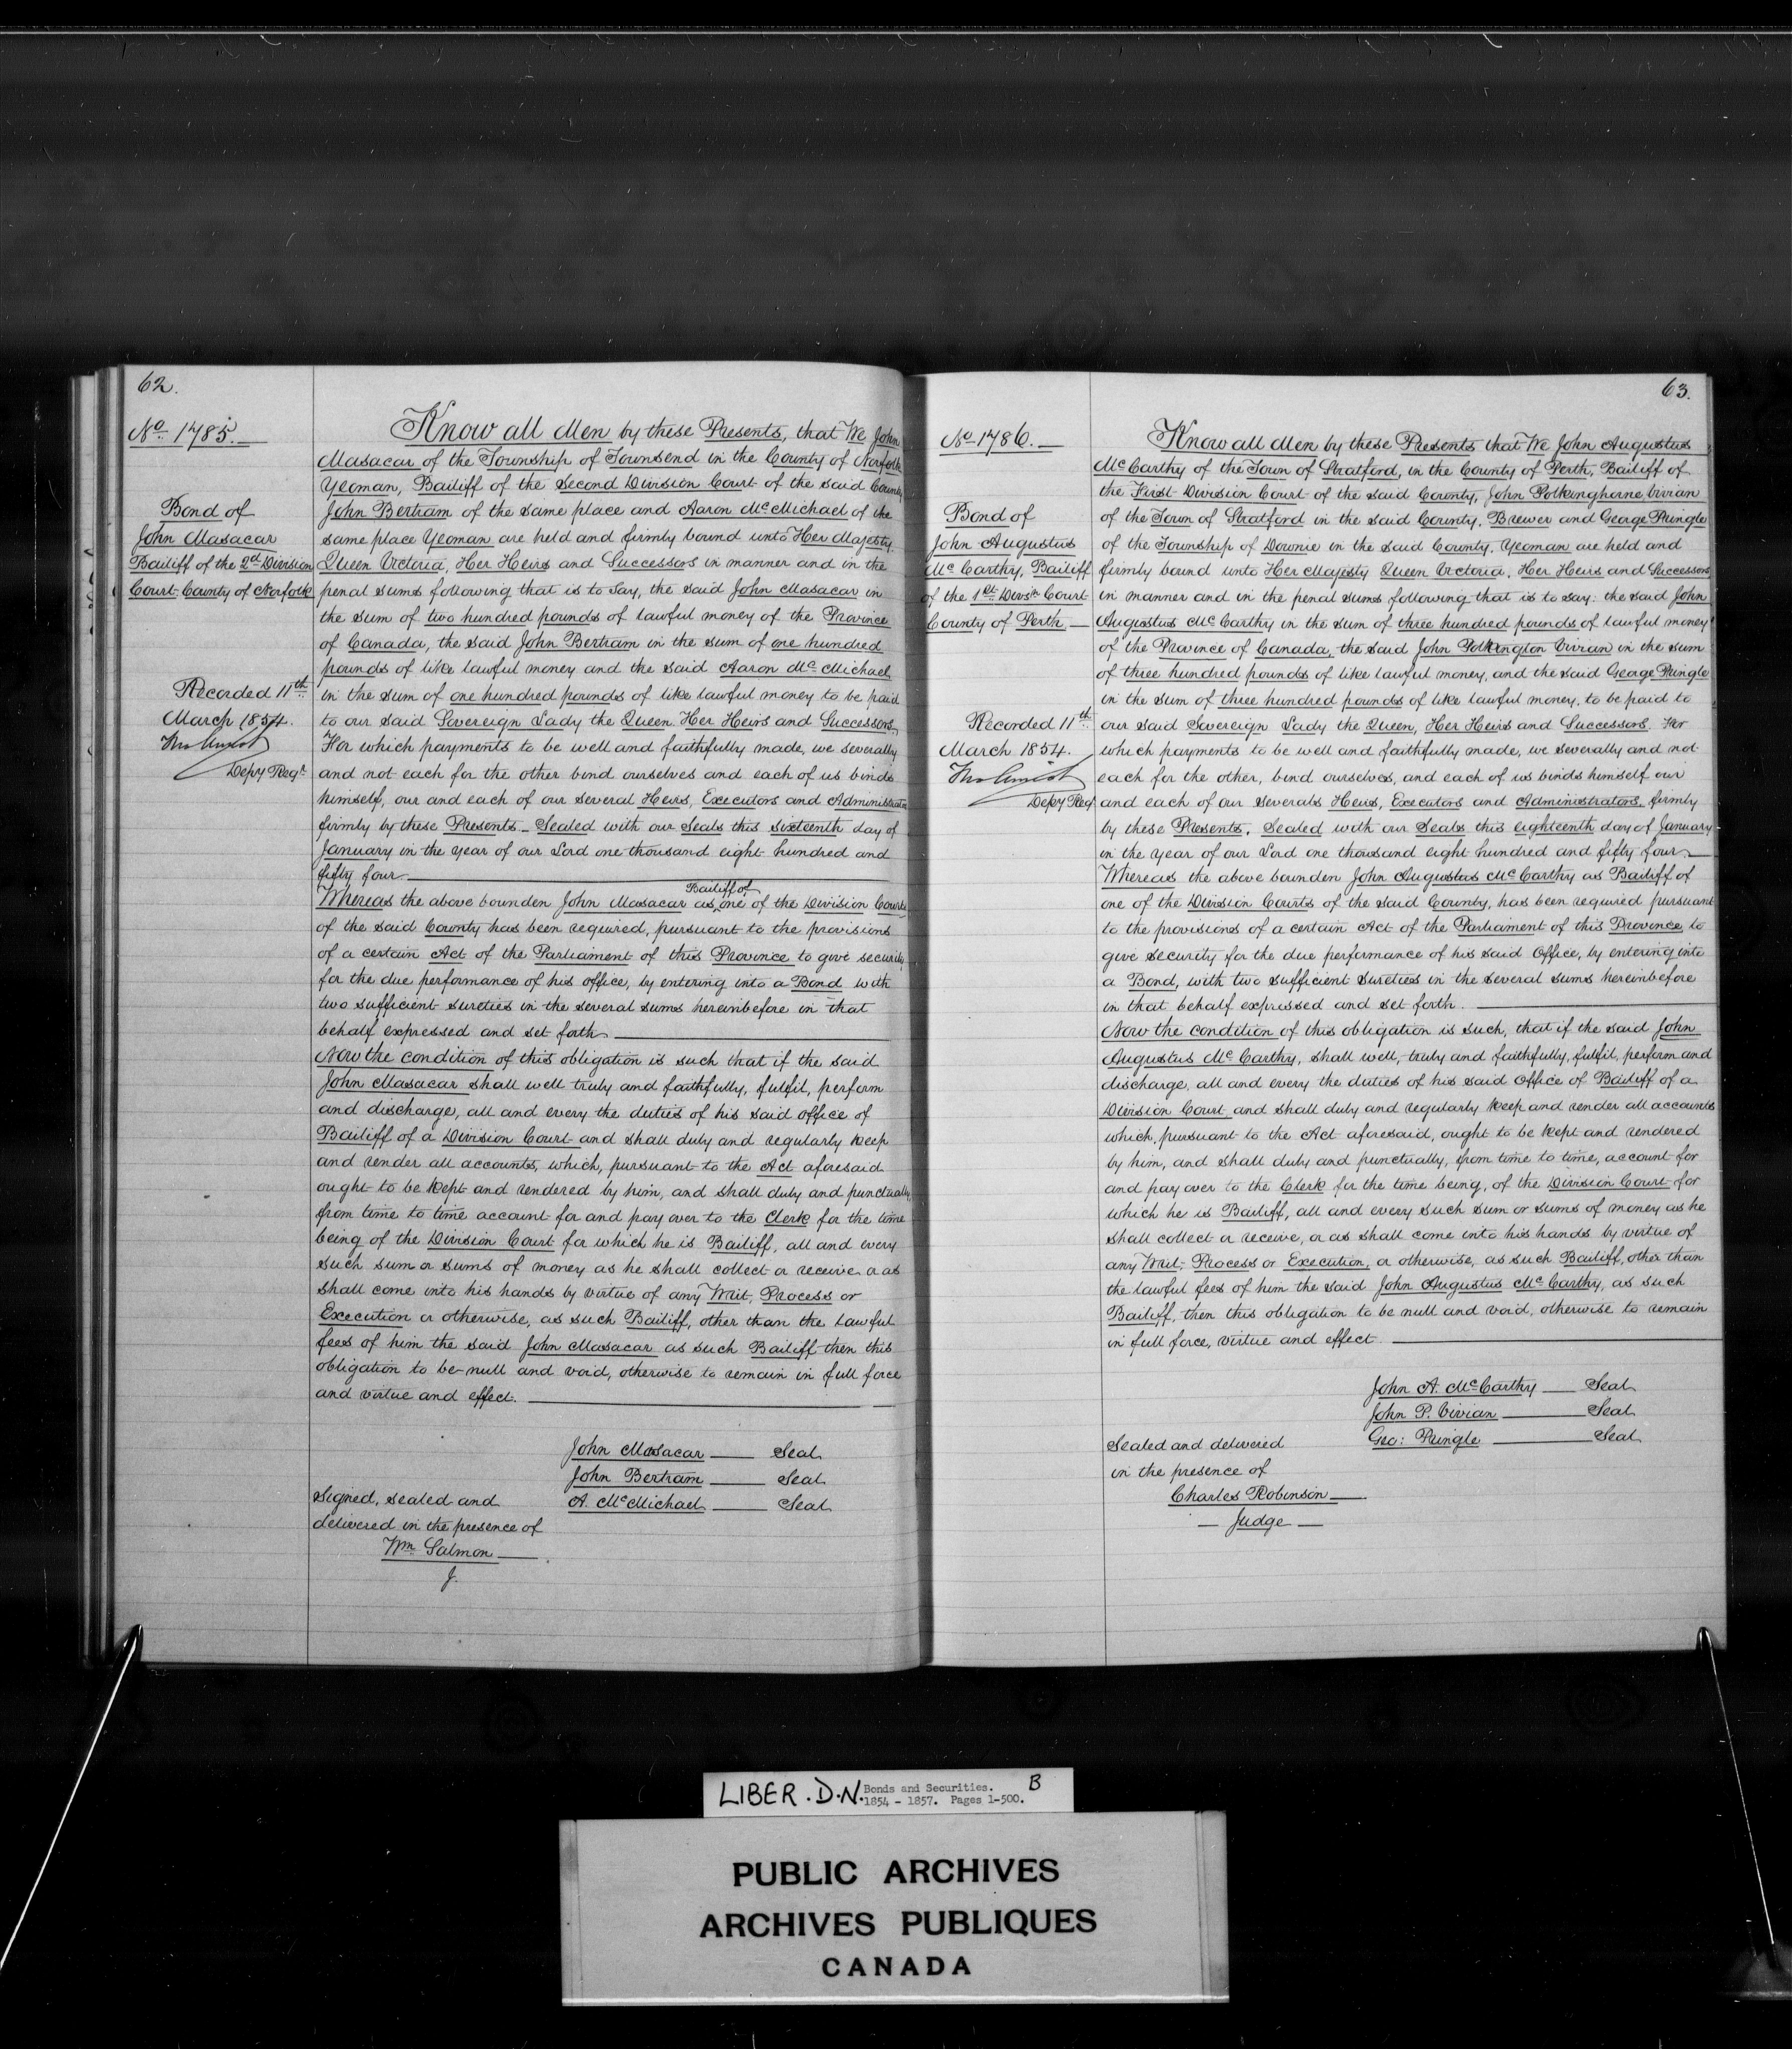 62.
No. 1785.
Bond of
John Masacar
Bailiff of the 2nd Division
Court County of Norfolk
Recorded 11th
March 1854.
Depy Regr
Know all Men by these Presents, that We John
Masacar of the Township of Townsend in the County of Norfolk
Yeoman, Bailiff of the Second Division Court of the said County,
John Bertram of the same place and Aaron McMichael of the
same place Yeoman are held and firmly bound unto Her Majesty
Queen Victoria, Her Heirs and Successors in manner and in the
penal sums following that is to say, the said John Masacar in
the sum of two hundred pounds of lawful money of the Province
of Canada, the said John Bertram in the sum of one hundred
pounds of like lawful money and the said Aaron McMichael
in the sum of one hundred pounds of like lawful money to be paid
to our said Sovereign Lady the Queen Her Heirs and Successors,
For which payments to be well and faithfully made, we severally
and not each for the other bind ourselves and each of us binds
himself, our and each of our several Heirs, Executors and Administrators
firmly by these Presents. Sealed with our Seals this sixteenth day of
January in the year of our Lord one thousand eight hundred and
fifty four
Whereas the above bounden John Masacar as Bailiff of one of the Division Courts
of the said County has been required, pursuant to the provisions
of a certain Act of the Parliament of this Province to give security
for the due performance of his office, by entering into a Bond with
two sufficient sureties in the several sums hereinbefore in that
behalf expressed and set forth
Now the condition of this obligation is such that if the said
John Masacar shall well truly and faithfully, fulfil, perform
and discharge, all and every the duties of his said office of
Bailiff of a Division Court and shall duly and regularly keep
and render all accounts, which, pursuant to the Act aforesaid
ought to be kept and rendered by him, and shall duly and punctually
from time to time account for and pay over to the Clerk for the time
being of the Division Court for which he is Bailiff, all and every
such sum or sums of money as he shall collect or receive or as
shall come into his hands by virtue of any Writ, Process or
Execution or otherwise, as such Bailiff, other than the Lawful
fees of him the said John Masacar as such Bailiff then this
obligation to be null and void, otherwise to remain in full force
and virtue and effect.
John Masacar Seal
John Bertram Seal
A. McMichael Seal
Signed, sealed and
delivered in the presence of
Wm Salmon
J.
63.
No. 1786.
Bond of
John Augustus
McCarthy, Bailiff
of the 1st Divisn Court
County of Perth
Recorded 11th
March 1854.
Depy Reg
Know all Men by these Presents that We John Augustus
McCarthy of the Town of Stratford, in the County of Perth, Bailiff of
the First Division Court of the said County, John Polkinghorne Vivian
of the Town of Stratford in the said County, Brewer and George Pringle
of the Township of Downie in the said County, Yeoman are held and
firmly bound unto Her Majesty Queen Victoria, Her Heirs and Successors
in manner and in the penal sums following that is to say: the said John
Augustus McCarthy in the sum of three hundred pounds of lawful money
of the Province of Canada, the said John Polkington Vivian in the sum
of three hundred pounds of like lawful money, and the said George Pringle
in the sum of three hundred pounds of like lawful money, to be paid to
our said Sovereign Lady the Queen, Her Heirs and Successors. For
which payments to be well and faithfully made, we severally and not
each for the other, bind ourselves, and each of us binds himself our
and each of our severals Heirs, Executors and Administrators, firmly
by these Presents. Sealed with our Seals this eighteenth day of January
in the year of our Lord one thousand eight hundred and fifty four
Whereas the above bounden John Augustus McCarthy as Bailiff of
one of the Division Courts of the said County, has been required pursuant
to the provisions of a certain Act of the Parliament of this Province, to
give security for the due performance of his said Office, by entering into
a Bond, with two sufficient Sureties in the several sums hereinbefore
in that behalf expressed and set forth.
Now the condition of this obligation is such, that if the said John
Augustus McCarthy, shall well, truly and faithfully, fulfil, perform and
discharge, all and every the duties of his said Office of Bailiff of a
Division Court and shall duly and regularly keep and render all accounts
which, pursuant to the Act aforesaid, ought to be kept and rendered
by him, and shall duly and punctually, from time to time, account for
and pay over to the Clerk for the time being, of the Division Court for
which he is Bailiff, all and every such sum or sums of money as he
shall collect or receive, or as shall come into his hands by virtue of
any Writ, Process or Execution, or otherwise, as such Bailiff, other than
the lawful fees of him the said John Augustus McCarthy, as such
Bailiff, then this obligation to be null and void, otherwise to remain
in full force, virtue and effect.
John A. McCarthy Seal
John P. Vivian Seal
Geo: Pringle Seal
Sealed and delivered
in the presence of
Charles Robinson
Judge
LIBER. D.N. Bonds and Securities. B
1854 - 1857. Pages 1-500.
PUBLIC ARCHIVES
ARCHIVES PUBLIQUES
CANADA